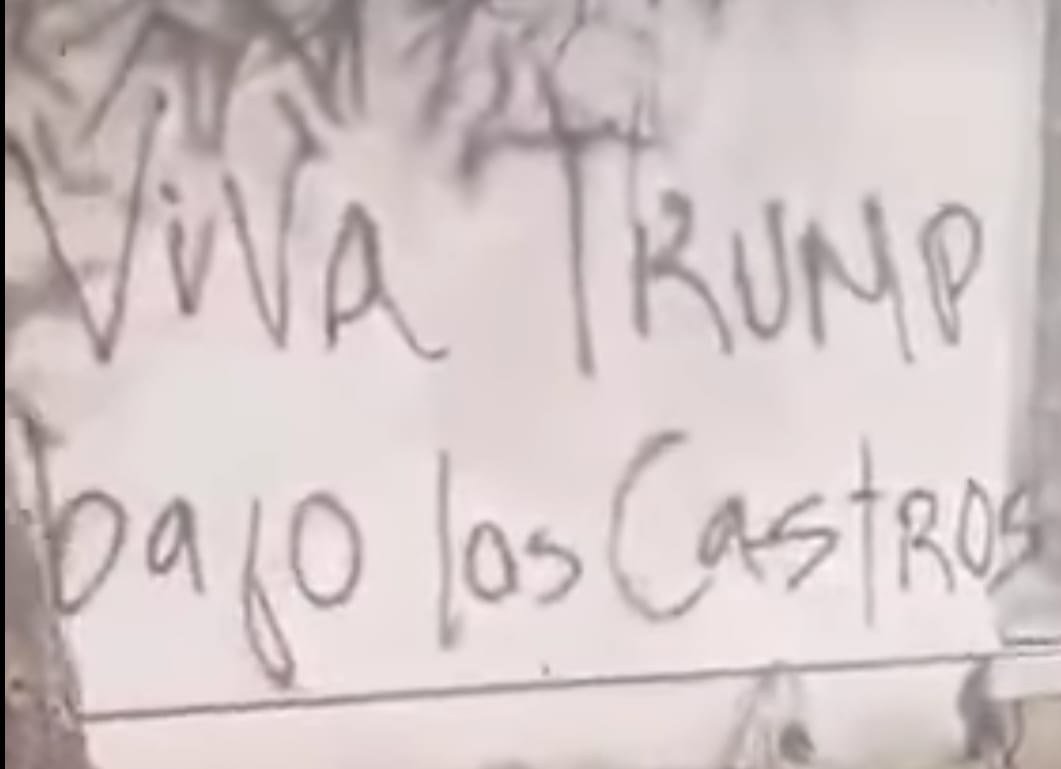 ViVA TRUMP
bajo los CastROs